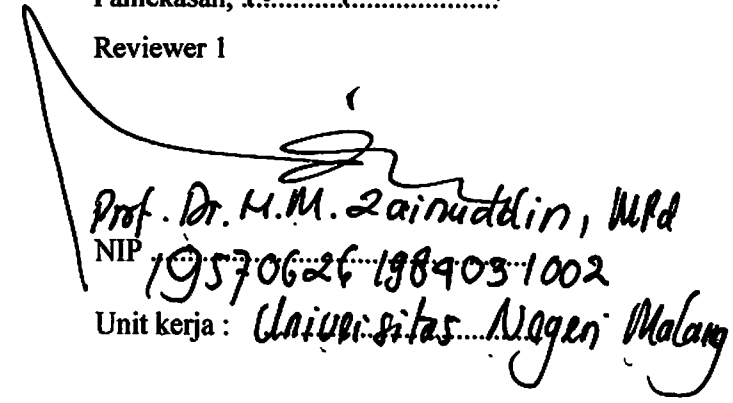 Pamekasan, ........................................
Reviewer 1
Prof. Dr. H.M. Zainuddin, MPd
NIP 19570626 198403 1002
Unit kerja : Universitas Negeri Malang